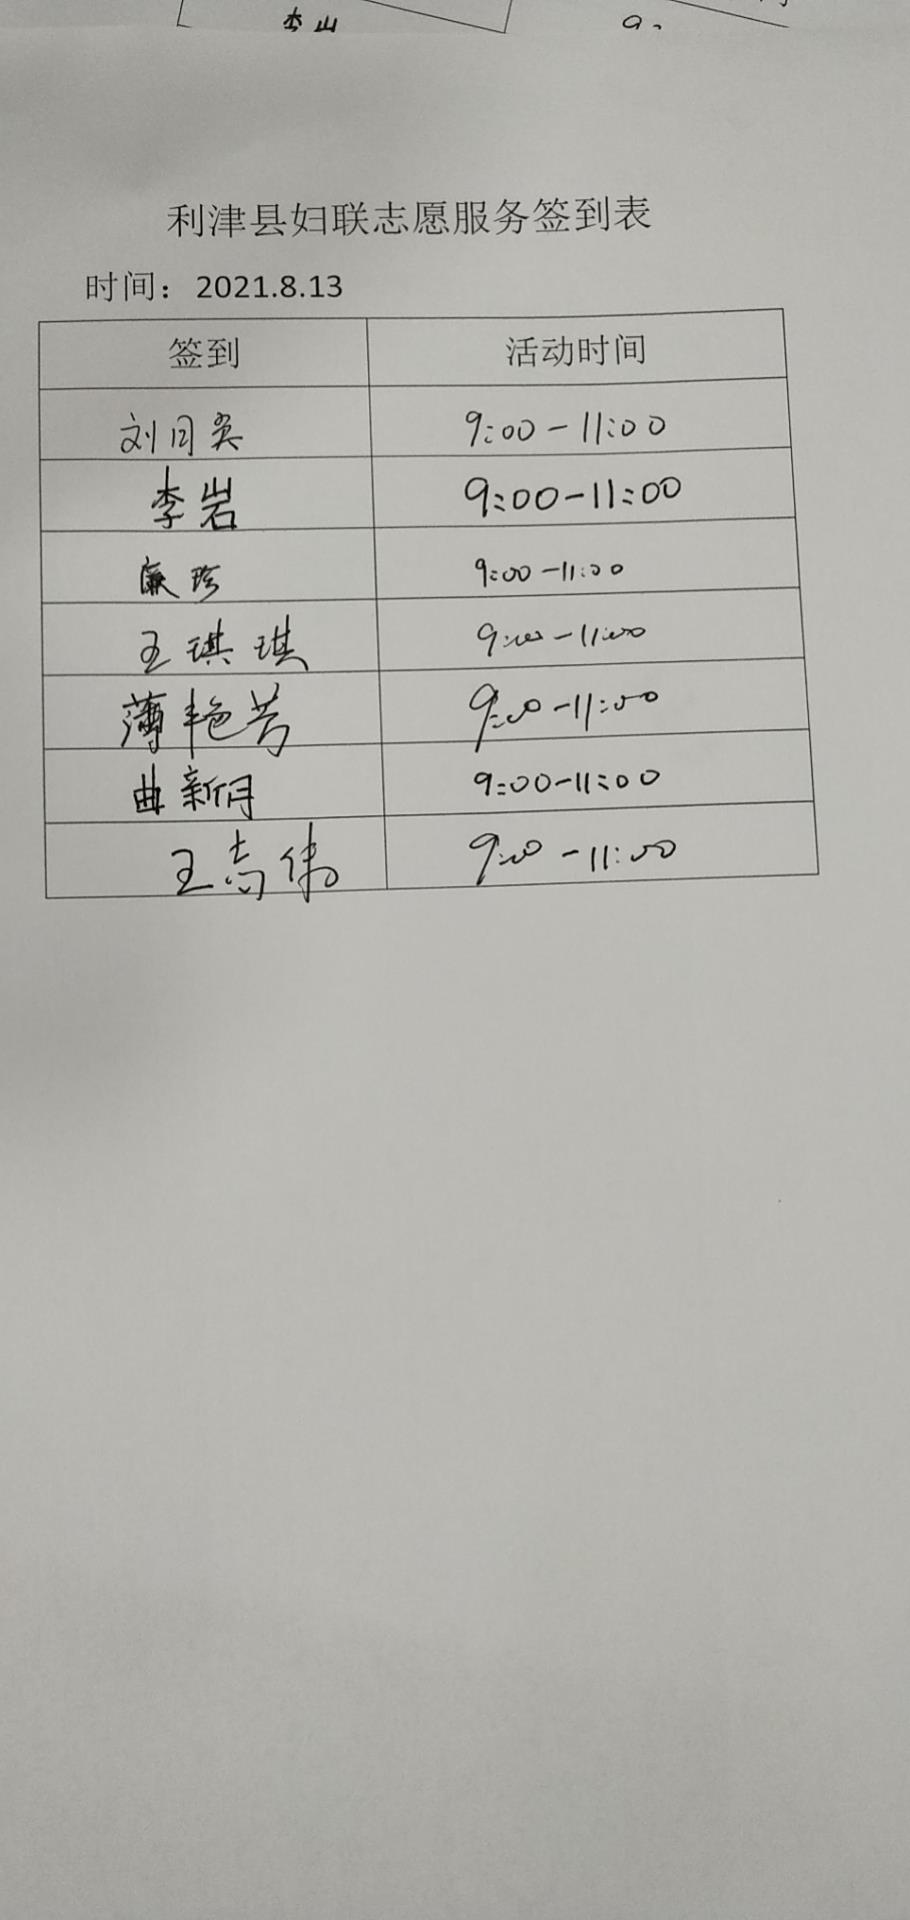 利津县妇联志愿服务签到表
时间：2021.8.13
签到 活动时间
刘月英 9:00-11:00
李岩 9:00-11:00
廉珍 9:00-11:00
王琪琪 9:00-11:00
薄艳芳 9:00-11:00
曲新月 9:00-11:00
王志伟 9:00-11:00